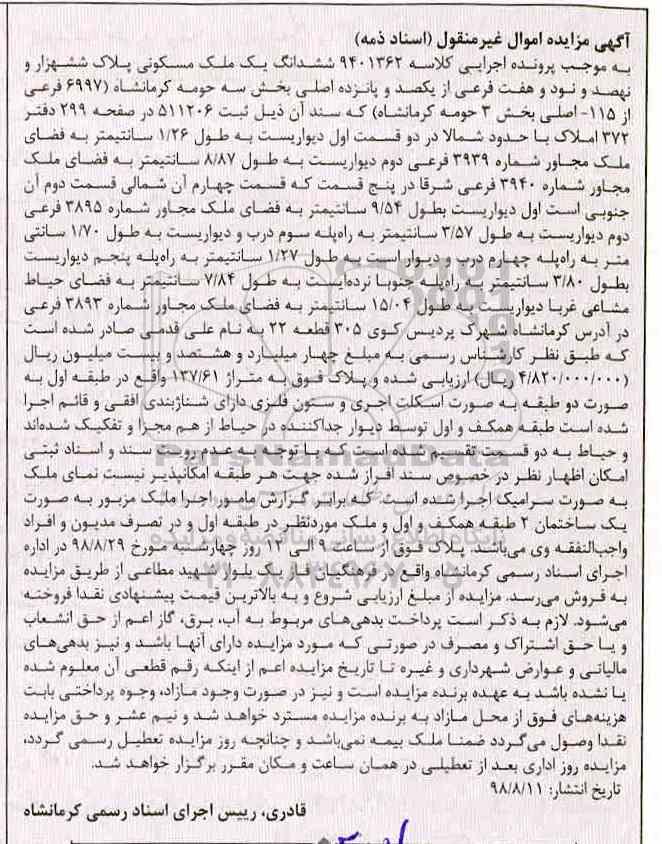 آگهی مزایده اموال غیرمنقول (اسناد ذمه)
به موجب پرونده اجرایی کلاسه ۹۴۰۱۳۶۲ ششدانگ یک ملک مسکونی پلاک ششهزار و
نهصد و نود و هفت فرعی از یکصد و پانزده اصلی بخش سه حومه کرمانشاه (۶۹۹۷ فرعی
از ۱۱۵- اصلی بخش ۳ حومه کرمانشاه) که سند آن ذیل ثبت ۵۱۱۲۰۶ در صفحه ۲۹۹ دفتر
۳۷۲ املاک با حدود شمالا در دو قسمت اول دیواریست به طول ۱/۲۶ سانتیمتر به فضای
ملک مجاور شماره ۳۹۳۹ فرعی دوم دیواریست به طول ۸/۸۷ سانتیمتر به فضای ملک
مجاور شماره ۳۹۴۰ فرعی شرقا در پنج قسمت که قسمت چهارم آن شمالی قسمت دوم آن
جنوبی است اول دیواریست بطول ۹/۵۴ سانتیمتر به فضای ملک مجاور شماره ۳۸۹۵ فرعی
دوم دیواریست به طول ۳/۵۷ سانتیمتر به راه‌پله سوم درب و دیواریست به طول ۱/۷۰ سانتی
متر به راه‌پله چهارم درب و دیوار است به طول ۱/۲۷ سانتیمتر به راه‌پله پنجم دیواریست
بطول ۳/۸۰ سانتیمتر به راه‌پله جنوبا نرده‌ایست به طول ۷/۸۴ سانتیمتر به فضای حیاط
مشاعی غربا دیواریست به طول ۱۵/۰۴ سانتیمتر به فضای ملک مجاور شماره ۳۸۹۳ فرعی
در آدرس کرمانشاه شهرک پردیس کوی ۳۰۵ قطعه ۲۲ به نام علی قدمی صادر شده است
که طبق نظر کارشناس رسمی به مبلغ چهار میلیارد و هشتصد و بیست میلیون ریال
(۴/۸۲۰/۰۰۰/۰۰۰ ریال) ارزیابی شده و پلاک فوق به متراژ ۱۳۷/۶۱ واقع در طبقه اول به
صورت دو طبقه به صورت اسکلت اجری و ستون فلزی دارای شناژبندی افقی و قائم اجرا
شده است طبقه همکف و اول توسط دیوار جداکننده در حیاط از هم مجزا و تفکیک شده‌اند
و حیاط به دو قسمت تقسیم شده است که با توجه به عدم رویت سند و اسناد ثبتی
امکان اظهار نظر در خصوص سند افراز شده جهت هر طبقه امکانپذیر نیست نمای ملک
به صورت سرامیک اجرا شده است که برابر گزارش مامور اجرا ملک مزبور به صورت
یک ساختمان ۲ طبقه همکف و اول و ملک موردنظر در طبقه اول و در تصرف مدیون و افراد
واجب‌النفقه وی می‌باشد. پلاک فوق از ساعت ۹ الی ۱۲ روز چهارشنبه مورخ ۹۸/۸/۲۹ در اداره
اجرای اسناد رسمی کرمانشاه واقع در فرهنگیان فاز یک بلوار شهید مطاعی از طریق مزایده
به فروش می‌رسد. مزایده از مبلغ ارزیابی شروع و به بالاترین قیمت پیشنهادی نقدا فروخته
می‌شود. لازم به ذکر است پرداخت بدهی‌های مربوط به آب، برق، گاز اعم از حق انشعاب
و یا حق اشتراک و مصرف در صورتی که مورد مزایده دارای آنها باشد و نیز بدهی‌های
مالیاتی و عوارض شهرداری و غیره تا تاریخ مزایده اعم از اینکه رقم قطعی آن معلوم شده
یا نشده باشد به عهده برنده مزایده است و نیز در صورت وجود مازاد، وجوه پرداختی بابت
هزینه‌های فوق از محل مازاد به برنده مزایده مسترد خواهد شد و نیم عشر و حق مزایده
نقدا وصول می‌گردد ضمنا ملک بیمه نمی‌باشد و چنانچه روز مزایده تعطیل رسمی گردد،
مزایده روز اداری بعد از تعطیلی در همان ساعت و مکان مقرر برگزار خواهد شد.
تاریخ انتشار: ۹۸/۸/۱۱
قادری، رییس اجرای اسناد رسمی کرمانشاه
ParsNamadData